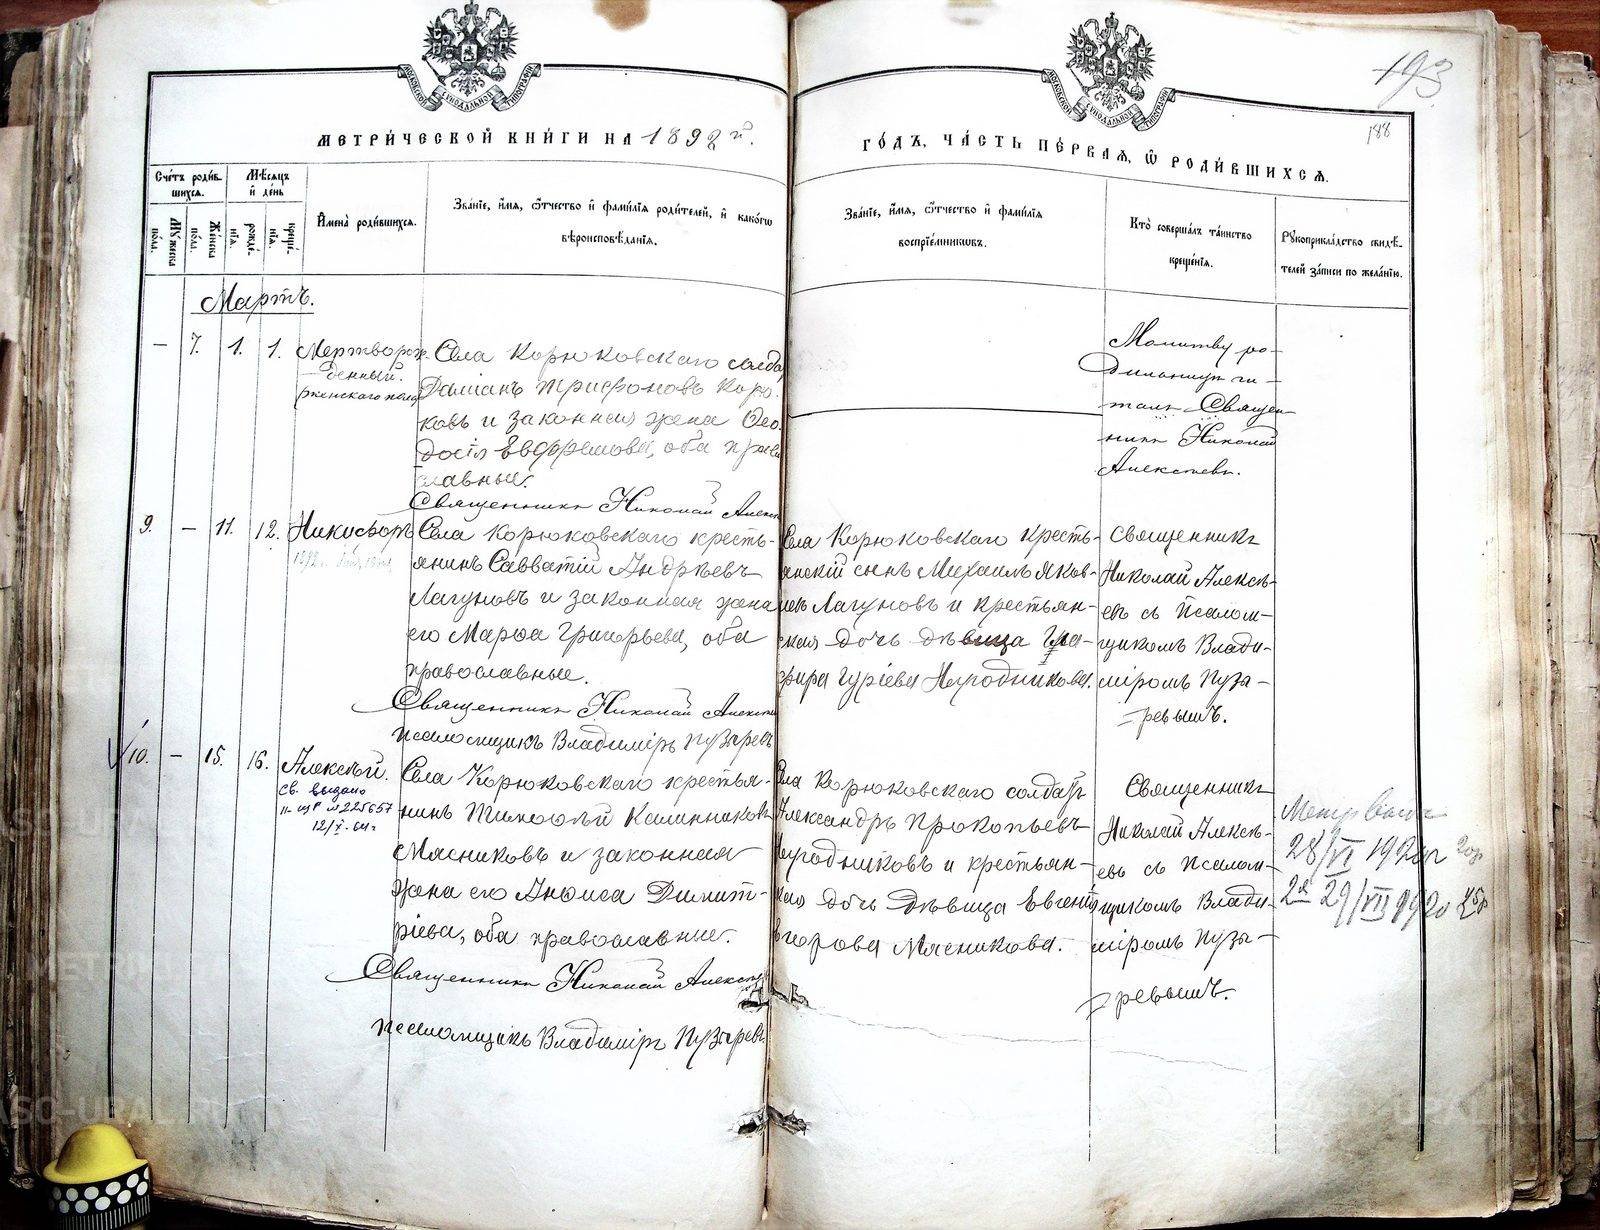 МОСКОВСКОЙ СѴНОДАЛЬНОЙ ТИПОГРАФІИ
МОСКОВСКОЙ СѴНОДАЛЬНОЙ ТИПОГРАФІИ
193
188
МЕТРИ́ЧЕСКОЙ КНИ́ГИ НА 1892 й.
ГО́ДЪ, ЧА́СТЬ ПЕ́РВАѦ, Ѡ҆ РОДИ́ВШИХСѦ.
Сче́тъ роди́в-
шихсѧ.
Мѣ́сѧцъ
и҆ де́нь
Мꙋ́жеска по́ла.
Же́нска по́ла.
рожде́-нїѧ.
креще́-нїѧ.
И҆мена̀ роди́вшихсѧ.
Зва́нїе, и҆́мѧ, ѻ҆́тчество и҆ фами́лїѧ роди́телей, и҆ како́гѡ
вѣроисповѣ́данїѧ.
Зва́нїе, и҆́мѧ, ѻ҆́тчество и҆ фами́лїѧ
воспрїе́мниковъ.
Кто̀ соверша́лъ та́инство
креще́нїѧ.
Рꙋкоприкла́дство свидѣ́-
телей за́писи по жела́нїю.
Мартъ.
— 7. 1. 1.
Мертворож-
денный.
женскаго пола
Села Корюковскаго солда
Даміанъ Трифоновъ Корю-
ковъ и законная жена Ѳео-
досія Евфремова, оба право
славные.
Священникъ Николай Алекс
Молитву ро-
дильницѣ чи-
талъ Священ-
никъ Николай
Алексѣевъ.
9. — 11. 12.
Никифоръ
Села Корюковскаго кресть-
янинъ Савватій Андреевъ
Лагуновъ и законная жена
его Марѳа Григорьева, оба
православные.
Священникъ Николай Алексѣе
псаломщикъ Владиміръ Пузыревъ
Села Корюковскаго кресть-
янскій сынъ Михаилъ Яков-
левъ Лагуновъ и крестьян-
ская дочь дѣвица Гла-
фира Гуріева Нагодникова.
Священникъ
Николай Алексѣ-
евъ съ псалом-
щикомъ Влади-
міромъ Пузы-
ревымъ.
10. — 15. 16.
Алексѣй.
св. выдано
II-ЩР № 225657
12/X-64 г
Села Корюковскаго крестья-
нинъ Тимоѳей Калинниковъ
Мясниковъ и законная
жена его Анѳиса Димит-
ріева, оба православные.
Священникъ Николай Алексѣе
псаломщикъ Владиміръ Пузыревъ
Села Корюковскаго солдатъ
Александръ Прокопьевъ
Нагодниковъ и крестьян-
ская дочь дѣвица Евгенія
Егорова Мясникова.
Священникъ
Николай Алексѣ-
евъ съ псалом-
щикомъ Влади-
міромъ Пузы-
ревымъ.
28/VI 1920 г
2я 29/VII 1920